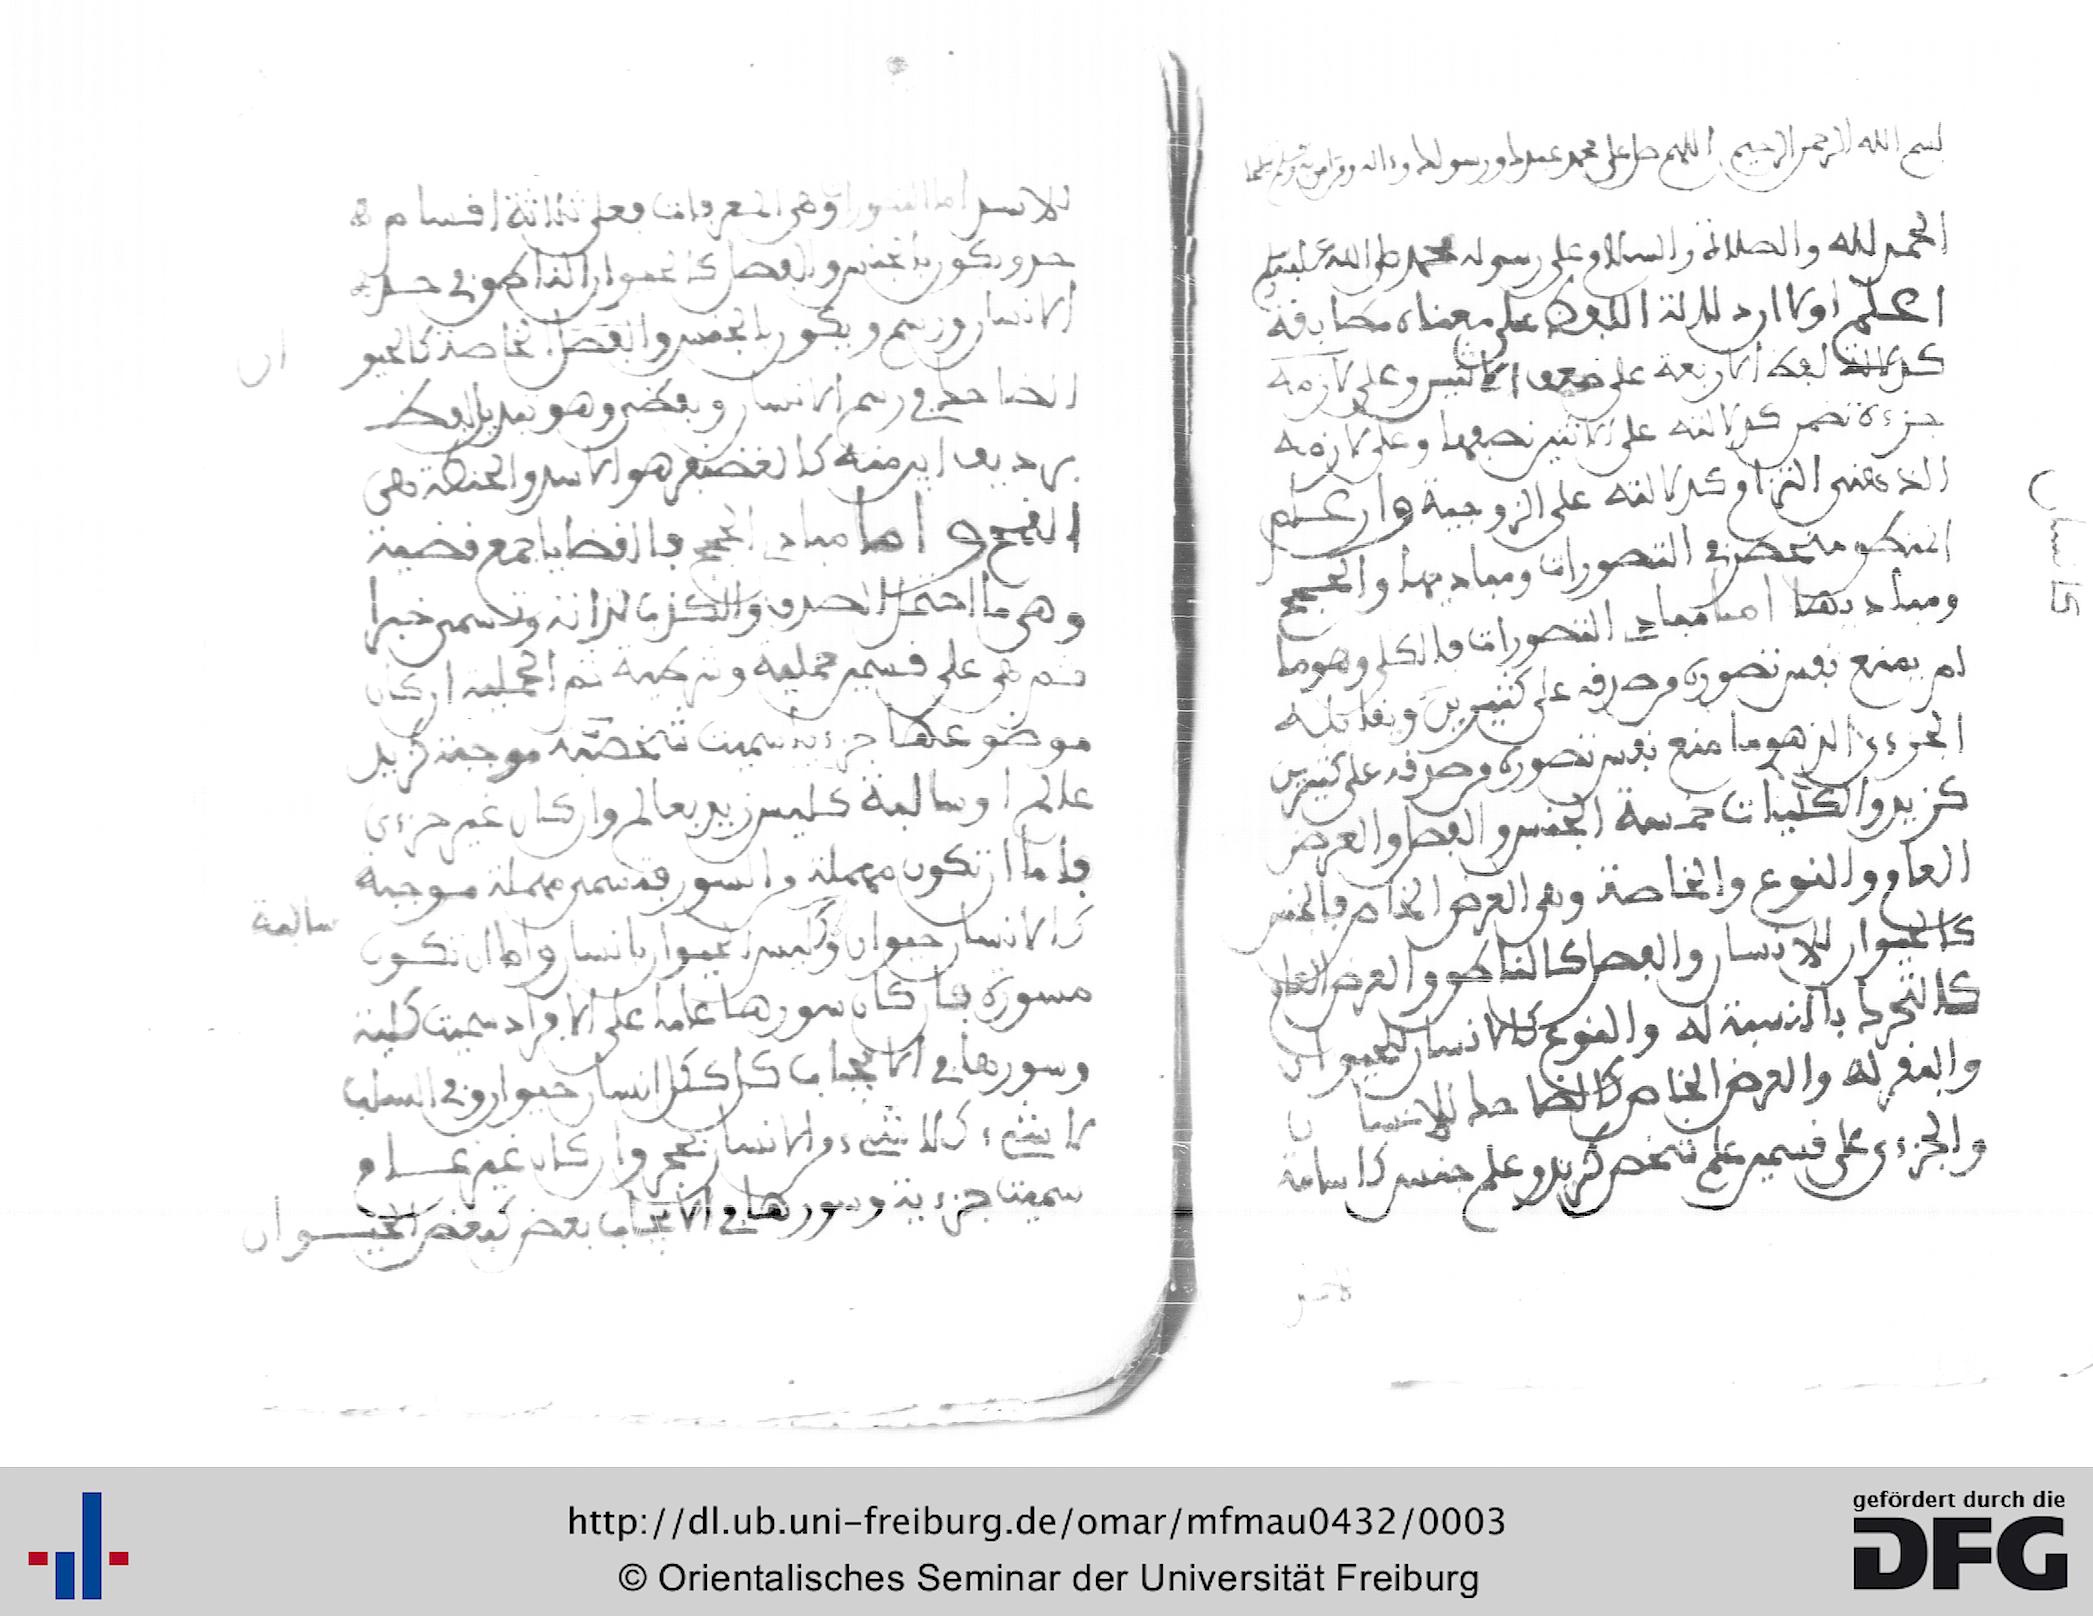 بسم الله الرحمن الرحيم اللهم صل على محمد عبدك ورسولك وءاله
الحمد لله والصلاة والسلام على رسوله محمد صلى الله عليه وسلم
اعلم اولا ان دلالة اللفظ على معناه مطابقة
كدلالة لفظ الاربعة على ضعف الاثنين وعلى لازمه
جزءه تضمن كدلالته على الاثنين نصفها وعلى لازمه
الذهني التزام كدلالته على الزوجية واعلم
المنطق منحصر في التصورات ومباديها والحجج
ومباديها اما مبادي التصورات فالكلي وهو ما
لم يمنع نفس تصوره صدقه على كثيرين ويقابله
الجزءي الذ هو ما منع نفس تصوره صدقه على كثيرين
كزيد والكليات خمسة الجنس والفصل والعرض
العام والنوع والخاصة وهي العرض الخاص فالجنس
كالحيوان للانسان والفصل كالناطق والعرض العام
كالتحرك بالنسبة له والنوع كالانسان للحيوان
والعرض الخاص كالضاحك للانسان
والجزءي على قسمين علم شخص كزيد وعلم جنس كاسامة
كانسان
للاسد اما التصورات وهي المعرفات فعلى ثلاثة اقسام
حد ويكون بالجنس والفصل كالحيوان الناطق في حد
الانسان ورسم ويكون بالجنس والخاصة كالحيو ان
الضاحك في رسم الانسان ولفظي وهو تبديل لفظ
برديف ابين منه كالغضنفر هو الاسد والحنطة هي
القمح واما مبادي الحجج فالقضايا جمع قضية
وهي ما احتمل الصدق والكذب لذاته وتسمى خبرا
ثم هي على قسمين حملية وشرطية ثم الحملية ان كان
موضوعها جزءيا سميت شخصية موجبة كزيد
عالم او سالبة كليس زيد بعالم وان كان غير جزءي
فاما ان تكون مهملة والسور فتسمى مهملة موجبة
كالانسان حيوان وليس الحيوان بانسان واما ان تكون
سالبة
مسورة فان كان سورها عاما على الافراد سميت كلية
وسورها في الايجاب كل ككل انسان حيوان وفي السلب
لا شيء كلا شيء من الانسان بحجر وان كان غير عام
سميت جزءية وسورها في الايجاب بعض كبعض الحيوان
http://dl.ub.uni-freiburg.de/omar/mfmau0432/0003
© Orientalisches Seminar der Universität Freiburg
gefördert durch die
DFG